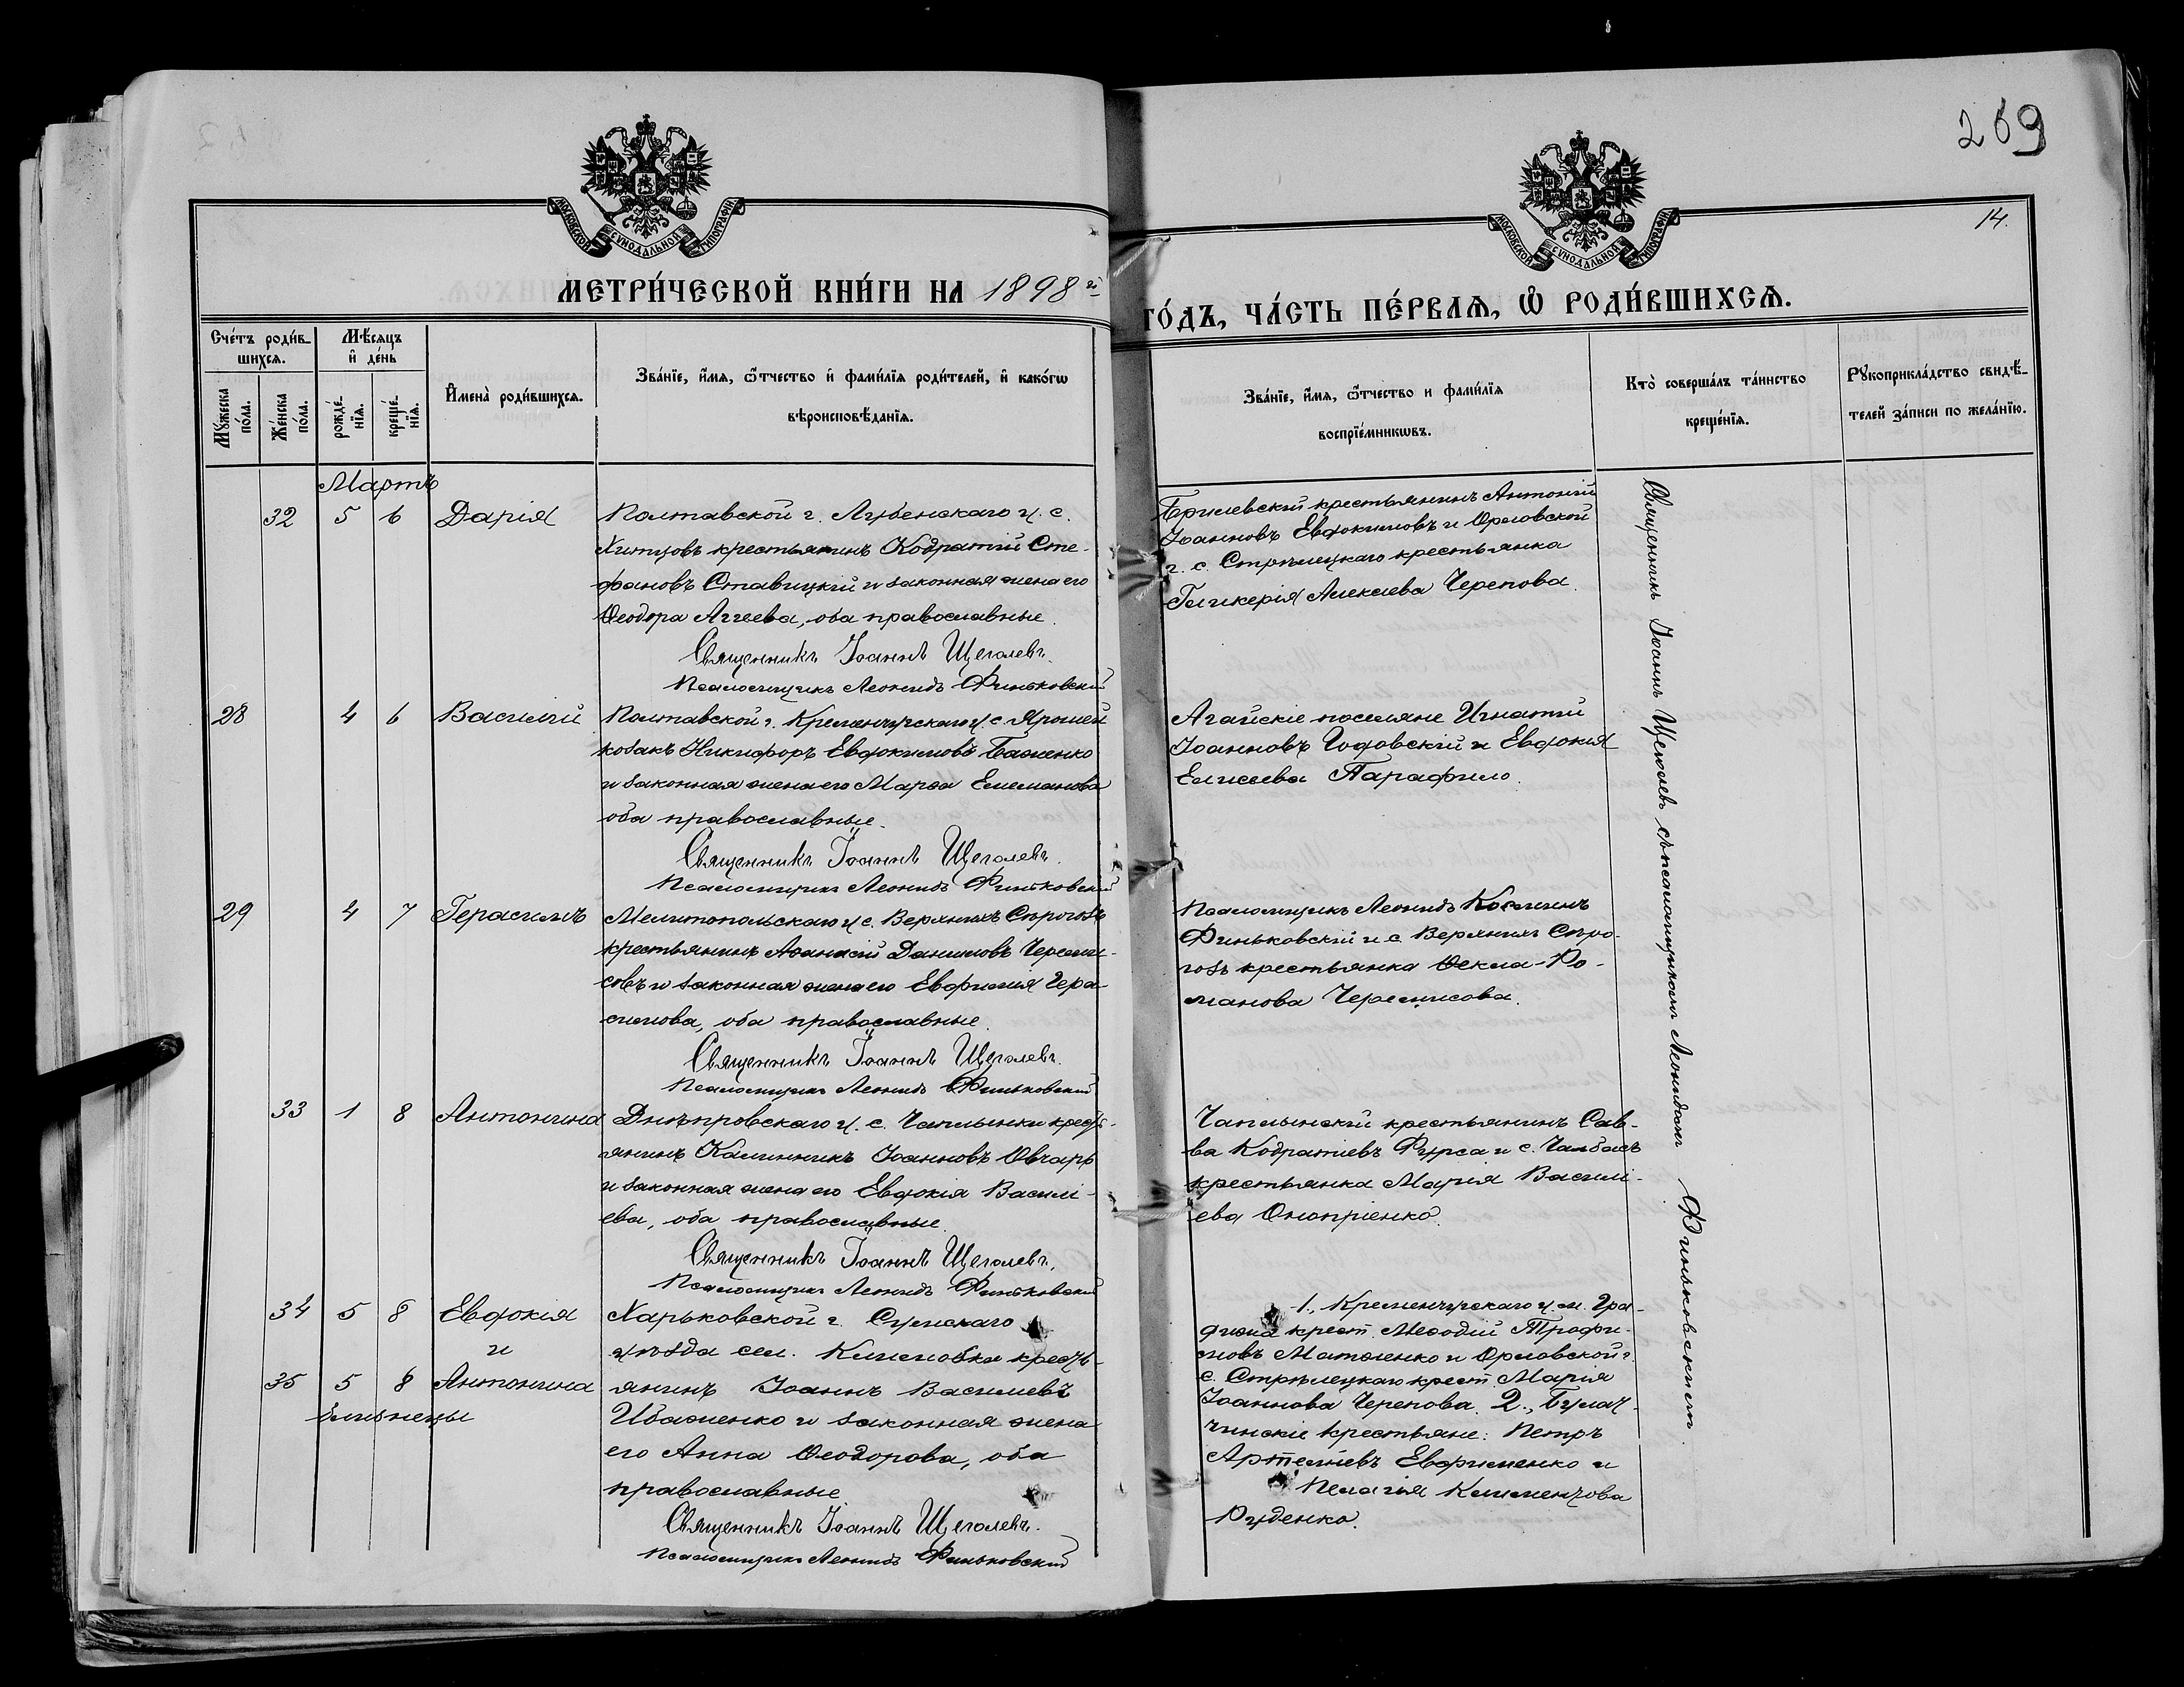 269
14.
МОСКОВСКОЙ СѴНОДАЛЬНОЙ ТИПОГРАФІИ
МОСКОВСКОЙ СѴНОДАЛЬНОЙ ТИПОГРАФІИ
МЕТРИ́ЧЕСКОЙ КНИ́ГИ НА 1898 й
ГО́ДЪ, ЧА́СТЬ ПЕ́РВАѦ, Ѿ РОДИ́ВШИХСѦ.
Сче́тъ роди́в-
шихсѧ.
Мѣ́сѧцъ
и҆ де́нь
Мꙋ́жеска по́ла.
Же́нска по́ла.
рожде́-
нїѧ.
креще́-
нїѧ.
И҆мена̀ роди́вшихсѧ.
Зва́нїе, и҆́мѧ, ѻ҆́тчество и҆ фами́лїѧ роди́телей, и҆ како́гѡ
вѣроисповѣ́данїѧ.
Зва́нїе, и҆́мѧ, ѻ҆́тчество и фами́лїѧ
воспрїе́мникѡвъ.
Кто̀ соверша́лъ та́инство
креще́нїѧ.
Рꙋкоприкла́дство свидѣ́-
телей за́писи по жела́нїю.
Мартъ
32 5 6 Дарія
Полтавской г. Лубенскаго у. с.
Хитцовъ крестьянинъ Кодратій Сте-
фановъ Ставицкій и законная жена его
Ѳеодора Аггеева, оба православные.
Священникъ Іоаннъ Щеголевъ.
Псаломщикъ Леонидъ Финьковскій
Брилевскій крестьянинъ Антоній
Іоанновъ Евдокимовъ и Орловской
г. с. Стрѣлецкаго крестьянка
Гликерія Алексѣева Черепова.
28 4 6 Василій
Полтавской г. Кременчугскаго у. с.
козакъ Никифоръ Евдокимовъ Баженко
и законная жена его Марѳа Емеліанова
оба православные.
Священникъ Іоаннъ Щеголевъ.
Псаломщикъ Леонидъ Финьковскій
Агайскіе поселяне Игнатій
Іоанновъ Годовскій и Евдокія
Елисеева Парафило.
29 4 7 Герасимъ
Мелитопольскаго у. с. Верхнихъ Сѣрогозъ
крестьянинъ Аѳанасій Даниловъ Череми-
совъ и законная жена его Евфимія Гера-
симова, оба православные.
Священникъ Іоаннъ Щеголевъ.
Псаломщикъ Леонидъ Финьковскій
Псаломщикъ Леонидъ Косминъ
Финьковскій и с. Верхнихъ Сѣро-
гозъ крестьянка Ѳекла-Ро-
манова Черемисова.
33 1 8 Антонина
Днѣпровскаго у. с. Чаплынки крест-
янинъ Калинникъ Іоанновъ Овчаръ
и законная жена его Евдокія Василі-
ева, оба православные.
Священникъ Іоаннъ Щеголевъ.
Псаломщикъ Леонидъ Финьковскій
Чаплынскій крестьянинъ Сав-
ва Кодратіевъ Фурса и с. Чалбасъ
крестьянка Марія Василі-
ева Оноприенко.
34 5 8 Евдокія
и
35 5 8 Антонина
близнецы
Харьковской г. Сумскаго
уѣзда сел. Климовка кресть-
янинъ Іоаннъ Василіевъ
Ибаженко и законная жена
его Анна Ѳеодорова, оба
православные.
Священникъ Іоаннъ Щеголевъ.
Псаломщикъ Леонидъ Финьковскій
1., Кременчугскаго у. м. Гра-
дижа крест. Меѳодій Трофи-
мовъ Матвіенко и Орловской г.
с. Стрѣлецкаго крест. Марія
Іоаннова Черепова. 2.,
чинскіе крестьяне: Петръ
Артеміевъ Евфименко и
Пелагія Климентова
Руденко.
Священникъ Іоаннъ Щеголевъ съ псаломщикомъ Леонидомъ Финьковскимъ.